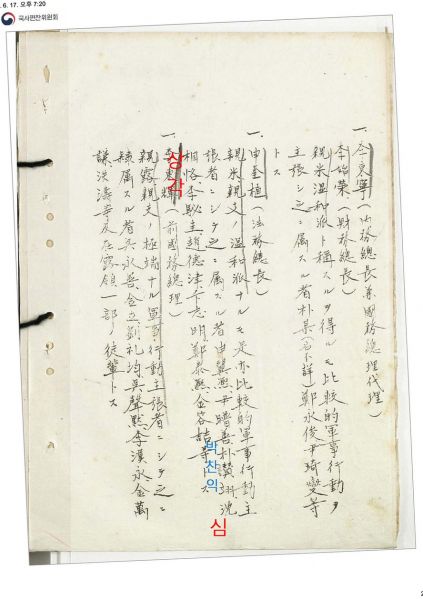 . 6. 17. 오후 7:20
국사편찬위원회
一、李東寧(内務總長兼國務總理代理)
李始榮(財務總長)
親米溫和派ト稱スルヲ得ルモ比較的軍事行動ヲ
主張シ之ニ属スル者朴某(名不詳)鄭永俊尹琦燮等
トス
一、申奎植(法務總長)
親米親支ノ溫和派ナルモ是亦比較的軍事行動主
張者ニシテ之ニ属スル者申翼熙尹譜善朴贊翊沈
相恪李駜圭趙德津 志明鄭泰熙金容喆等トス
一、李東輝(前國務總理)
親露親支ノ極端ナル軍事行動主張者ニシテ之ニ
隷属スル者 永善金立劉礼均吳聲默李漢永金萬
謙洪濤等及在露領一部ノ徒輩トス
상각
박찬익
심